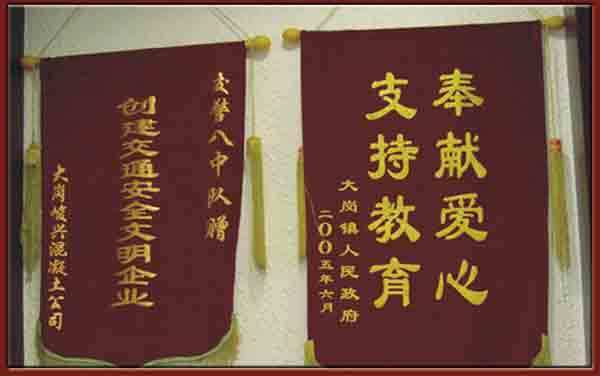 交警八中队赠
创建交通安全文明企业
大岗兴混凝土公司
奉献爱心
支持教育
大岗镇人民政府
二〇〇五年六月